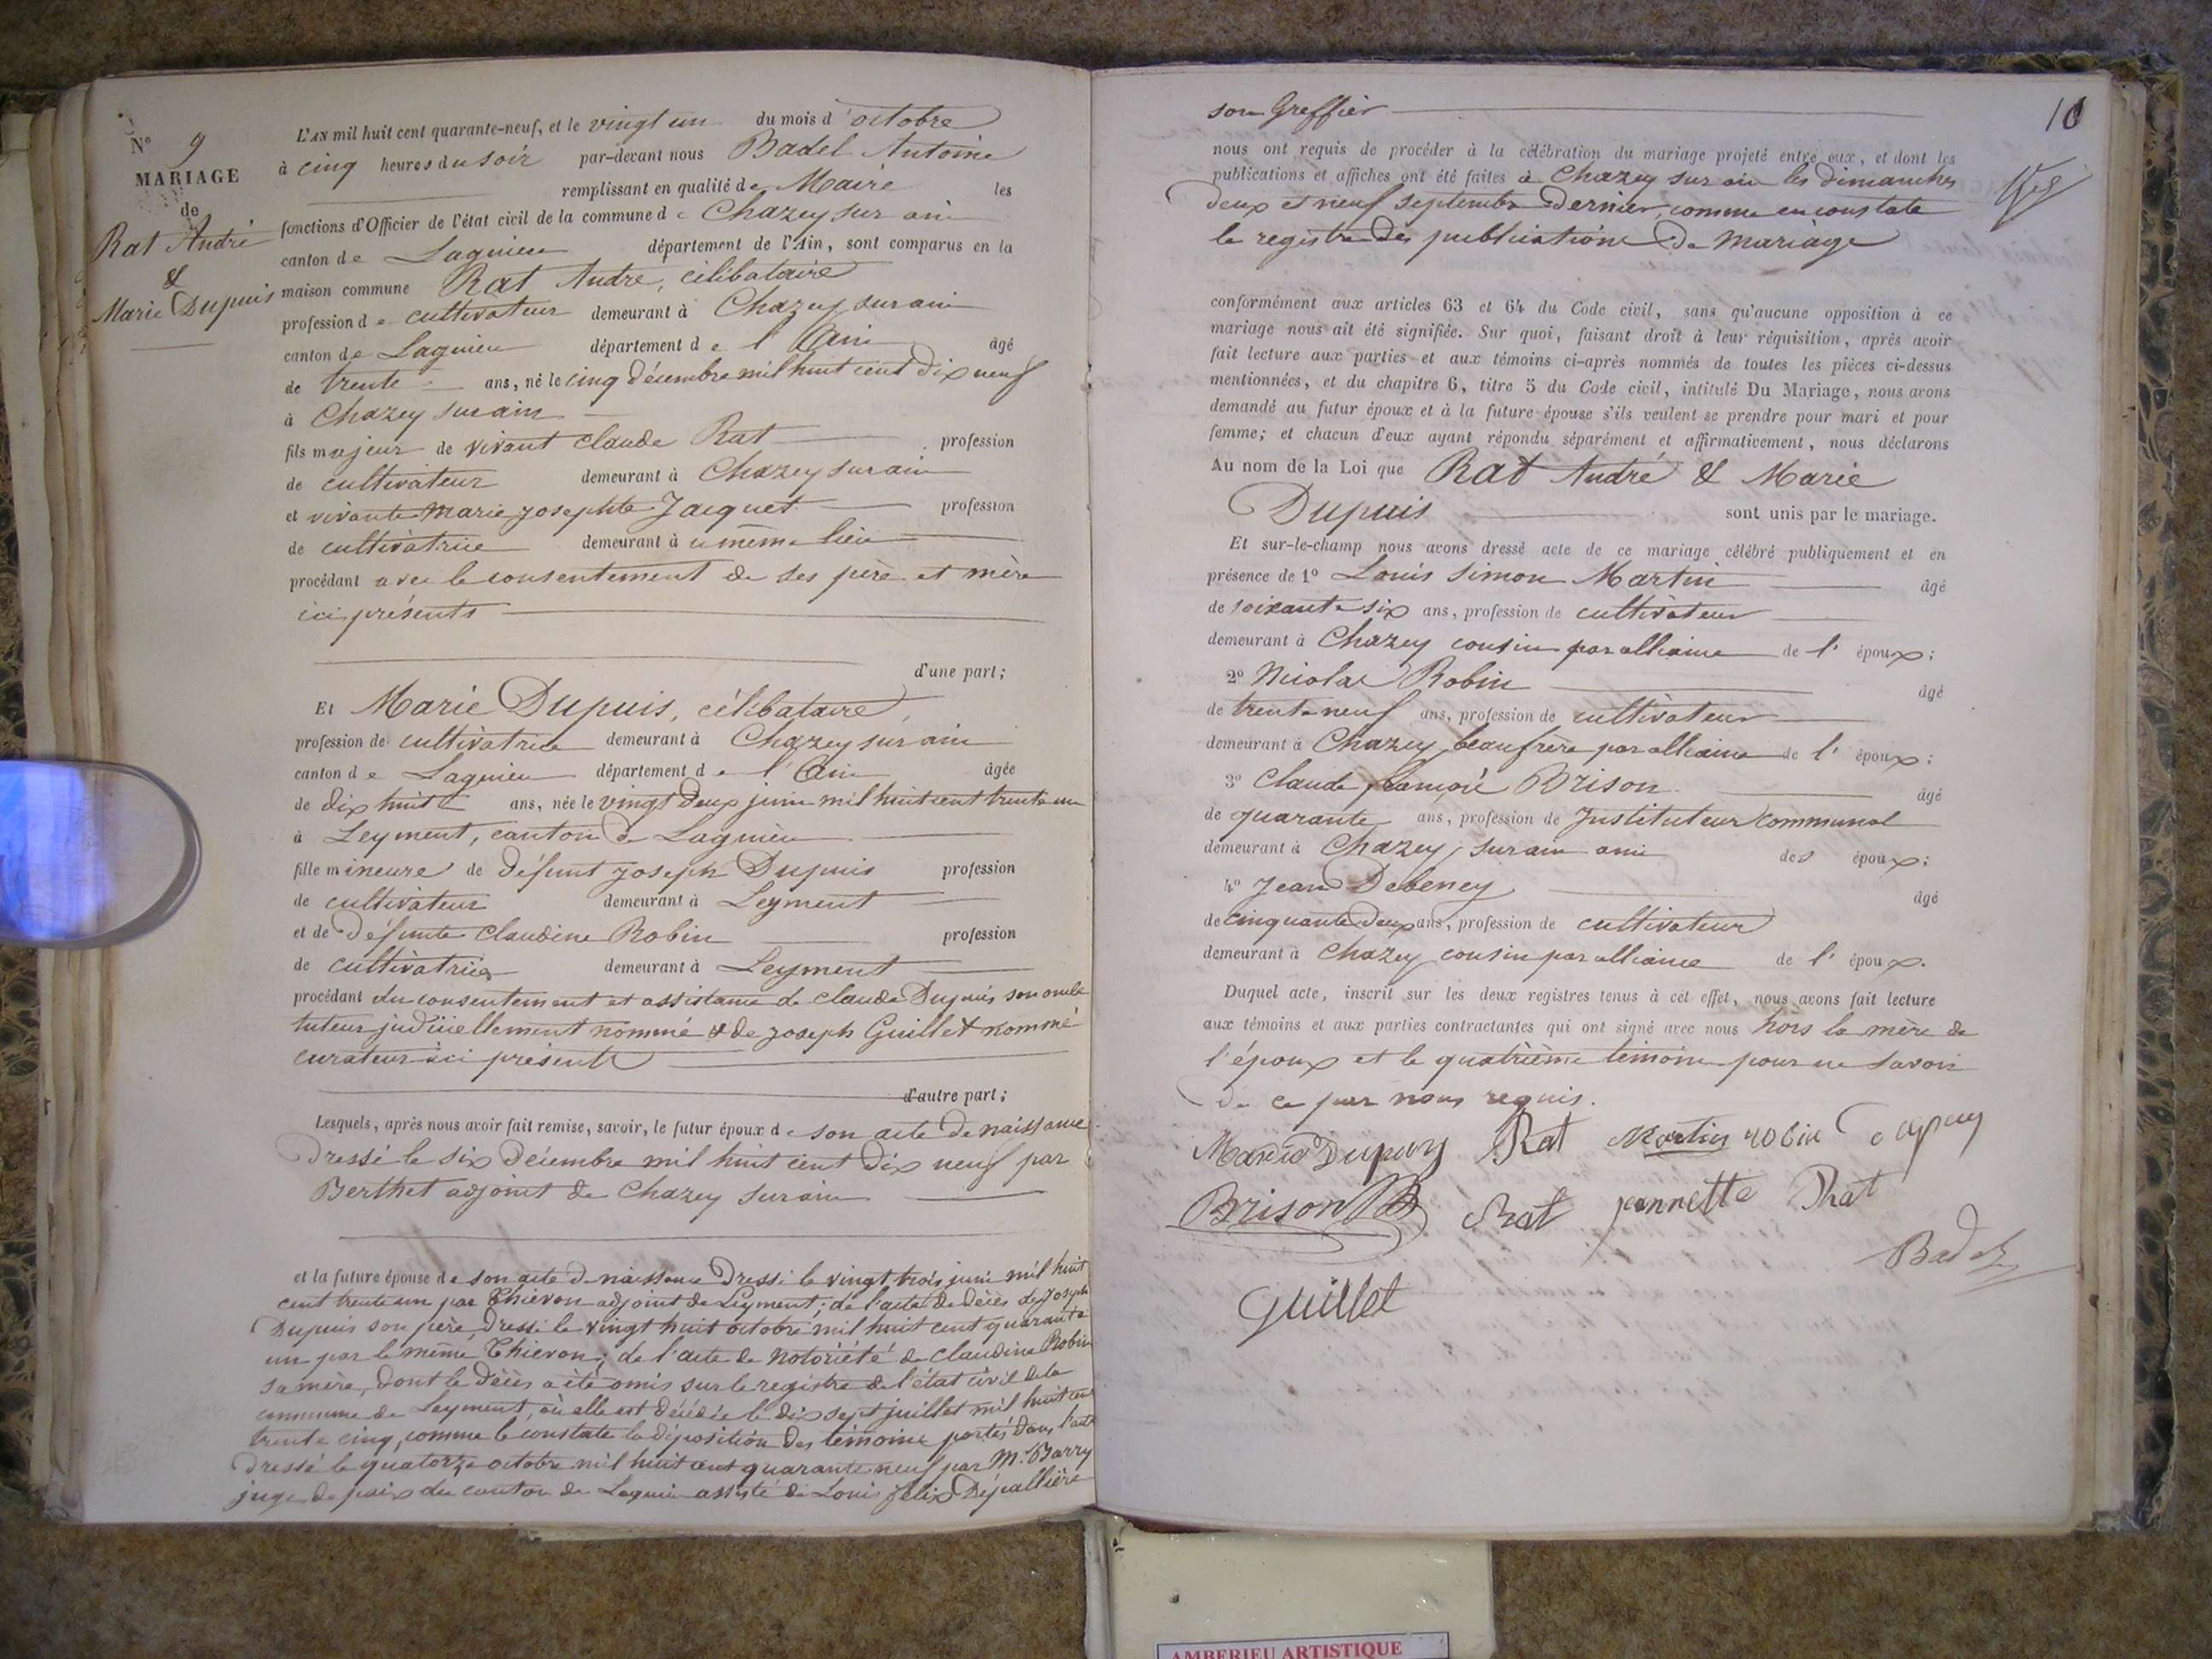 N° 9
MARIAGE
de
Rat André
&
Marie Dupuis
L'AN mil huit cent quarante-neuf, et le vingt un du mois d'octobre
à cinq heures du soir par-devant nous Badel Antoine
remplissant en qualité de Maire les
fonctions d'Officier de l'état civil de la commune de Chazey sur ain
canton de Lagnieu département de l'Ain, sont comparus en la
maison commune Rat André, célibataire
profession de cultivateur demeurant à Chazey sur ain
canton de Lagnieu département de l'Ain âgé
de trente ans, né le cinq décembre mil huit cent dix neuf
à Chazey sur ain
fils majeur de vivant Claude Rat profession
de cultivateur demeurant à Chazey sur ain
et vivante Marie Josephte Jacquet profession
de cultivatrice demeurant à u même lieu
procédant avec le consentement de ses père et mère
ici présents
d'une part;
Et Marie Dupuis, célibataire,
profession de cultivatrice demeurant à Chazey sur ain
canton de Lagnieu département de l'Ain âgée
de dix huit ans, née le vingt deux juin mil huit cent trente un
à Leyment, canton de Lagnieu
fille mineure de défunt Joseph Dupuis profession
de cultivateur demeurant à Leyment
et de défunte Claudine Robin profession
de cultivatrice demeurant à Leyment
procédant du consentement et assistance de Claude Dupuis son oncle
tuteur judiciellement nommé & de Joseph Guillet nommé
curateur ici présents
d'autre part;
Lesquels, après nous avoir fait remise, savoir, le futur époux de son acte de naissance
dressé le six décembre mil huit cent dix neuf par
Berthet adjoint de Chazey sur ain
et la future épouse de son acte de naissance dressé le vingt trois juin mil huit
cent trente un par Thievon adjoint de Leyment; de l'acte de décès de Joseph
Dupuis son père, dressé le vingt huit octobre mil huit cent quarante
un par le même Thievon; de l'acte de notoriété de Claudine Robin
sa mère, dont le décès a été omis sur le registre de l'état civil de la
commune de Leyment, où elle est décédée le dix sept juillet mil huit cent
trente cinq, comme le constate la déposition des témoins portés dans l'acte
dressé le quatorze octobre mil huit cent quarante neuf par Mr Barry
juge de paix du canton de Lagnieu assisté de Louis félix Dépallière
10
son Greffier
nous ont requis de procéder à la célébration du mariage projeté entre eux, et dont les
publications et affiches ont été faites à Chazey sur ain les dimanches
deux et neuf septembre dernier, comme en constate
le registre des publications de mariage
conformément aux articles 63 et 64 du Code civil, sans qu'aucune opposition à ce
mariage nous ait été signifiée. Sur quoi, faisant droit à leur réquisition, après avoir
fait lecture aux parties et aux témoins ci-après nommés de toutes les pièces ci-dessus
mentionnées, et du chapitre 6, titre 5 du Code civil, intitulé Du Mariage, nous avons
demandé au futur époux et à la future épouse s'ils veulent se prendre pour mari et pour
femme; et chacun d'eux ayant répondu séparément et affirmativement, nous déclarons
Au nom de la Loi que Rat André & Marie
Dupuis sont unis par le mariage.
Et sur-le-champ nous avons dressé acte de ce mariage célébré publiquement et en
présence de 1° Louis Simon Martin âgé
de soixante six ans, profession de cultivateur
demeurant à Chazey cousin par alliance de l'époux;
2° Nicolas Robin âgé
de trente neuf ans, profession de cultivateur
demeurant à Chazey beaufrère par alliance de l'époux;
3° Claude françois Brison âgé
de quarante ans, profession de Instituteur communal
demeurant à Chazey sur ain ami des époux;
4° Jean Debeney âgé
de cinquante deux ans, profession de cultivateur
demeurant à Chazey cousin par alliance de l'époux.
Duquel acte, inscrit sur les deux registres tenus à cet effet, nous avons fait lecture
aux témoins et aux parties contractantes qui ont signé avec nous hors la mère de
l'époux et le quatrième témoin pour ne savoir
de ce par nous requis.
Marie Dupuy Rat Martin robin Dupuy
Brison Rat jeannette Rat
Badel
Guillet
AMBERIEU ARTISTIQUE